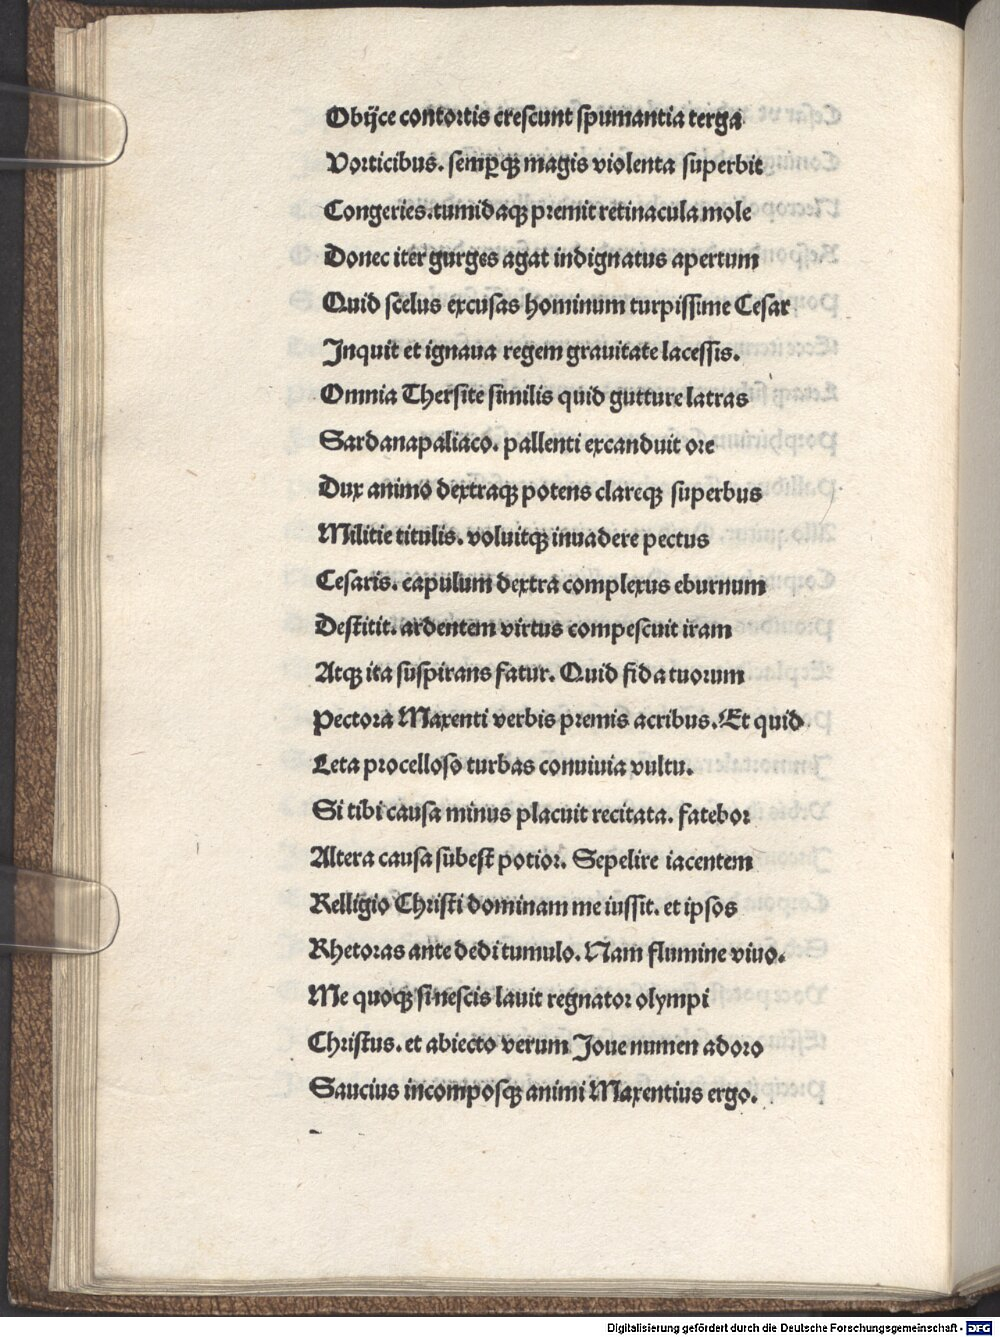 Obijce contortis crescunt spumantia terga
Vorticibus. semꝑqꝫ magis violenta superbit
Congeries.tumidaqꝫ premit retinacula mole
Donec iter gurges agat indignatus apertum
Quid scelus excusas hominum turpissime Cesar
Inquit et ignaua regem grauitate lacessis.
Omnia Thersite similis quid gutture latras
Sardanapaliaco. pallenti excanduit ore
Dux animo dextraqꝫ potens clareqꝫ superbus
Militie titulis. voluitqꝫ inuadere pectus
Cesaris. capulum dextra complexus eburnum
Destitit. ardentem virtus compescuit iram
Atqꝫ ita suspirans fatur. Quid fida tuorum
Pectora Maxenti verbis premis acribus. Et quid
Leta procelloso turbas conuiuia vultu.
Si tibi causa minus placuit recitata. fatebor
Altera causa subest potior. Sepelire iacentem
Relligio Christi dominam me iussit. et ipsos
Rhetoras ante dedi tumulo. Nam flumine viuo.
Me quoqꝫ si nescis lauit regnator olympi
Christus. et abiecto verum Ioue numen adoro
Saucius incomposqꝫ animi Maxentius ergo.
Digitalisierung gefördert durch die Deutsche Forschungsgemeinschaft - DFG